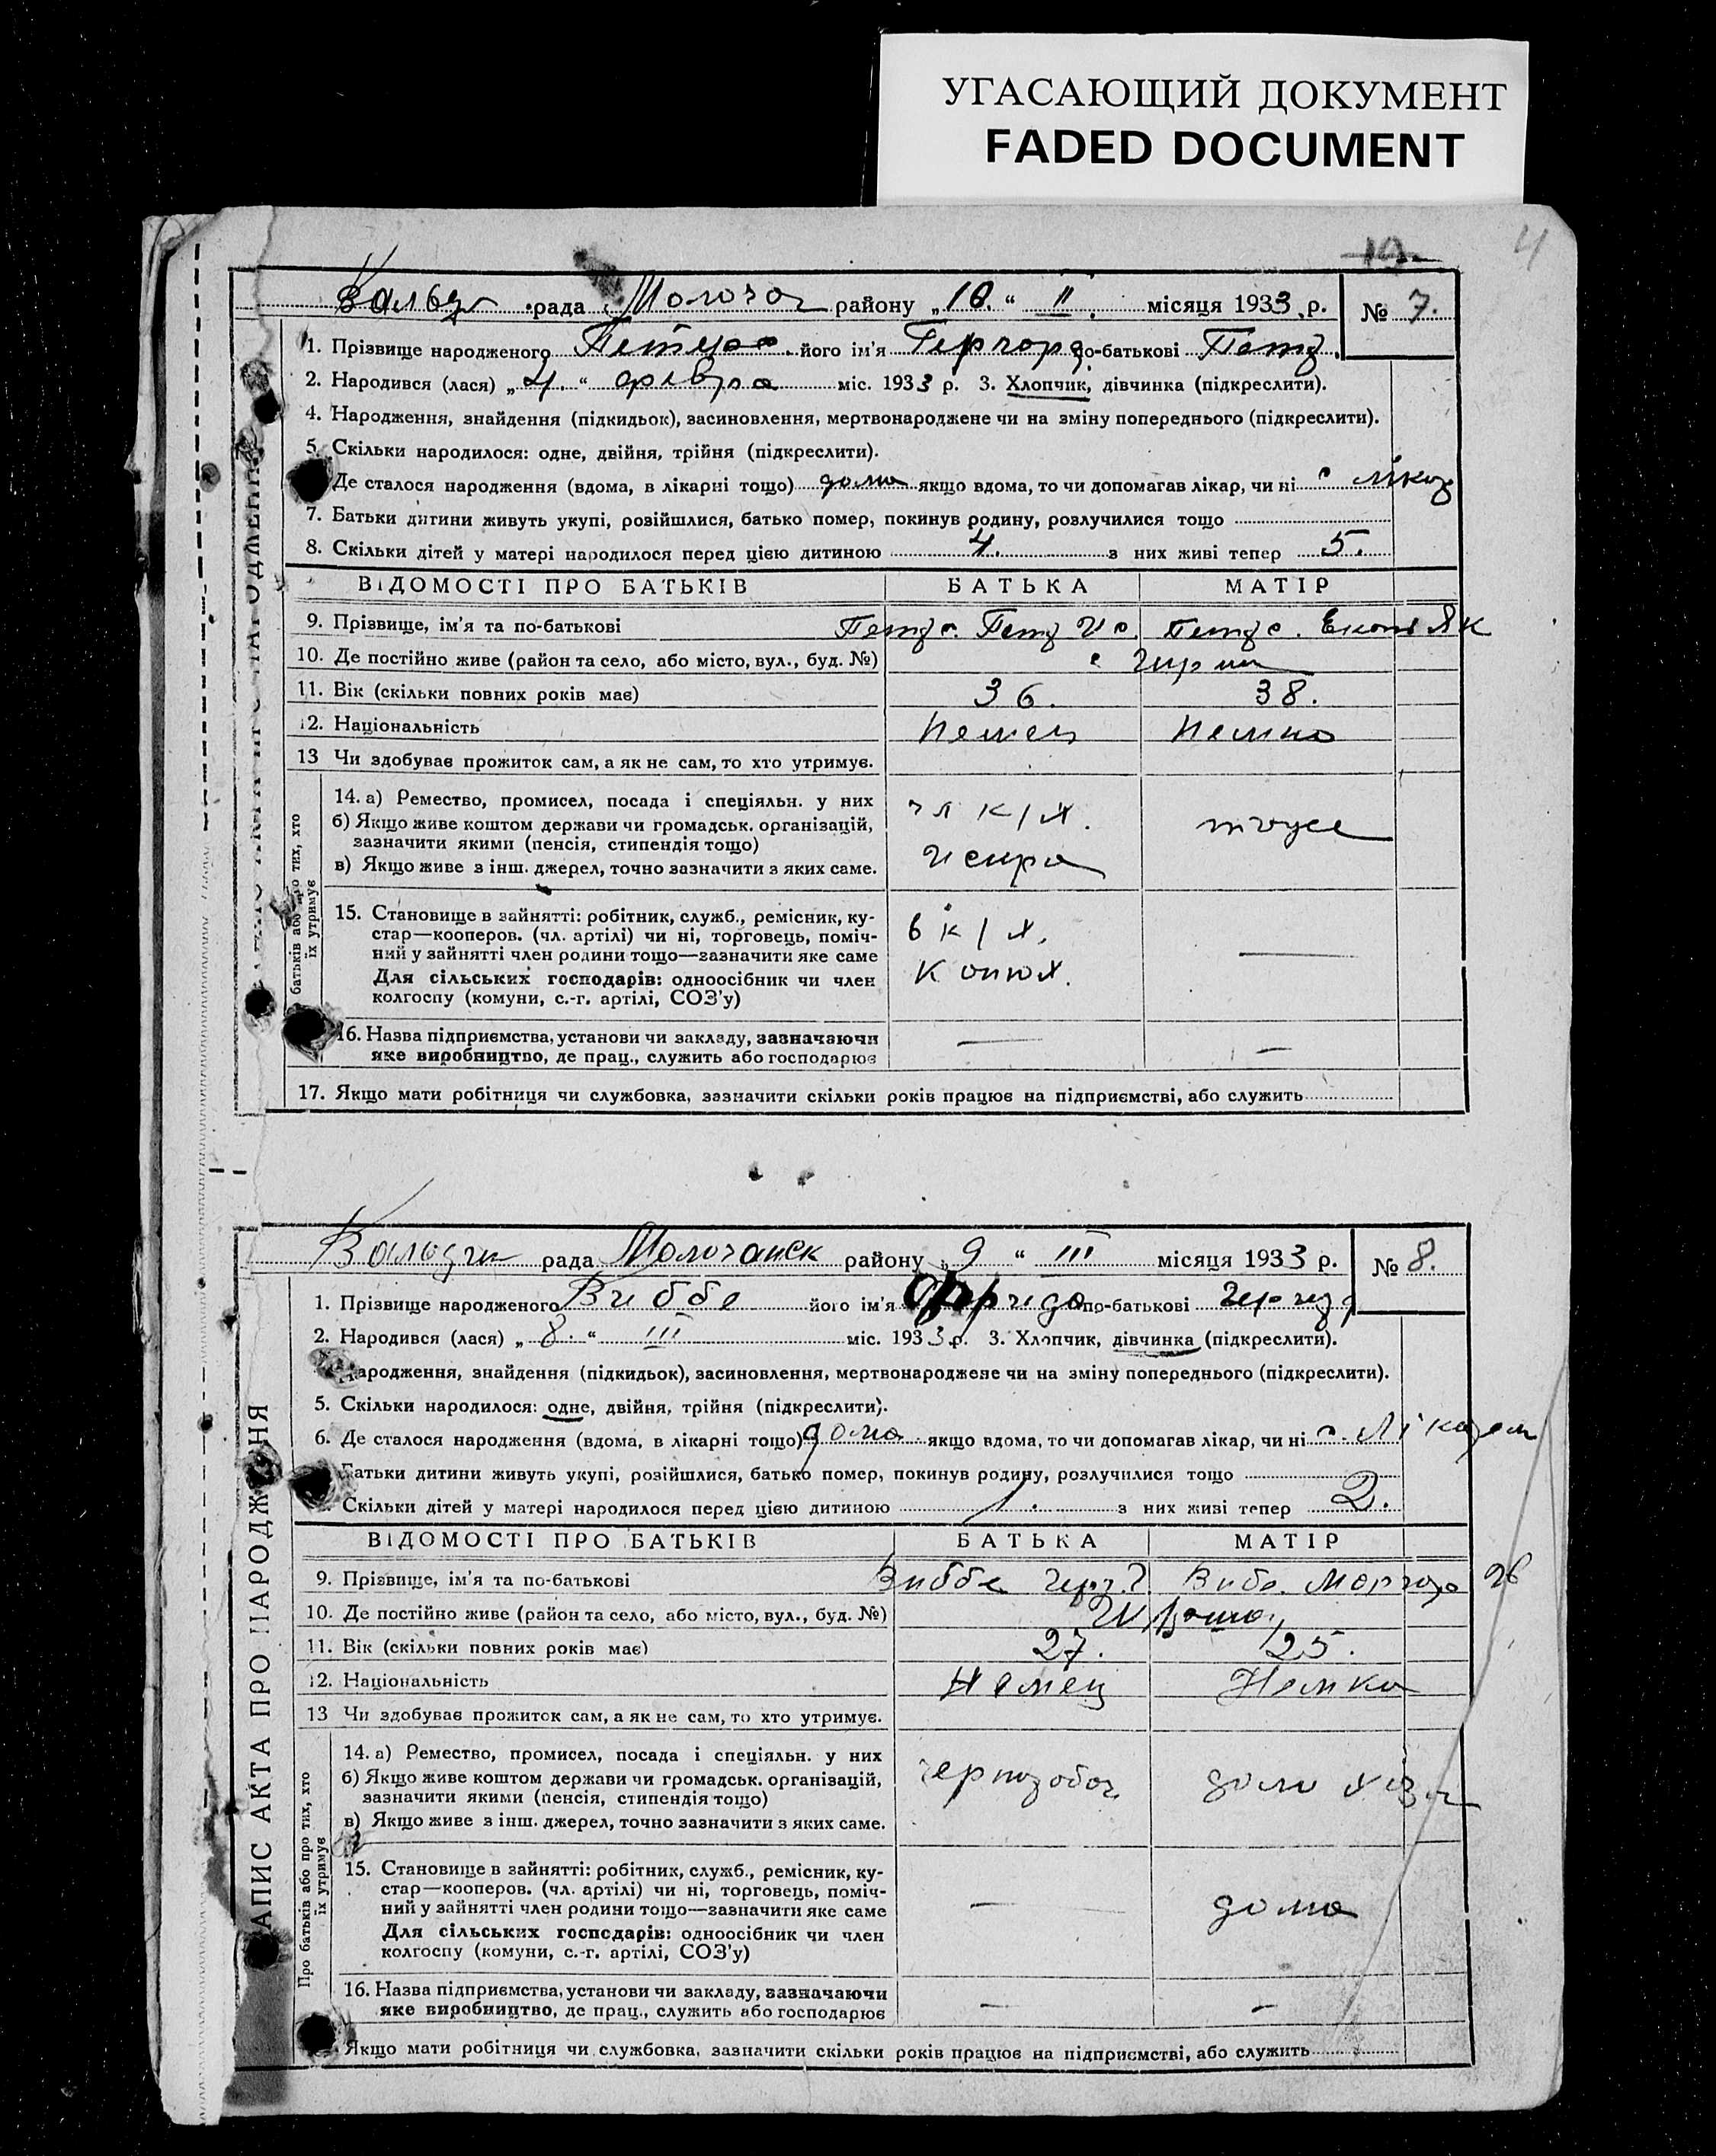 УГАСАЮЩИЙ ДОКУМЕНТ
FADED DOCUMENT
19.
4
рада Молочан району „10.“ II. місяця 1933 р. № 7.
1. Прізвище народженого його ім'я Гергард по-батькові Петр.
2. Народився (лася) „4.“ февра міс. 1933 р. 3. Хлопчик, дівчинка (підкреслити).
4. Народження, знайдення (підкидьок), засиновлення, мертвонароджене чи на зміну попереднього (підкреслити).
5. Скільки народилося: одне, двійня, трійня (підкреслити).
Де сталося народження (вдома, в лікарні тощо) дома якщо вдома, то чи допомагав лікар, чи ні с лікар
7. Батьки дитини живуть укупі, розійшлися, батько помер, покинув родину, розлучилися тощо
8. Скільки дітей у матері народилося перед цією дитиною 4. з них живі тепер 5.
ВІДОМОСТІ ПРО БАТЬКІВ БАТЬКА МАТІР
9. Прізвище, ім'я та по-батькові
10. Де постійно живе (район та село, або місто, вул., буд. №)
11. Вік (скільки повних років має) 36. 38.
12. Національність Немец Немка
13 Чи здобуває прожиток сам, а як не сам, то хто утримує.
батьків або про тих, хто
їх утримує
14. а) Ремество, промисел, посада і спеціяльн. у них чл к/х.
б) Якщо живе коштом держави чи громадськ. організацій,
зазначити якими (пенсія, стипендія тощо)
в) Якщо живе з інш. джерел, точно зазначити з яких саме. Искра
15. Становище в зайнятті: робітник, служб., ремісник, ку-
стар—кооперов. (чл. артілі) чи ні, торговець, поміч- в к/х.
ний у зайнятті член родини тощо—зазначити яке саме
Для сільських господарів: одноосібник чи член Конюх.
колгоспу (комуни, с.-г. артілі, СОЗ'у)
16. Назва підприємства, установи чи закладу, зазначаючи — —
яке виробництво, де прац., служить або господарює
17. Якщо мати робітниця чи службовка, зазначити скільки років працює на підприємстві, або служить
рада Молочанск району „9“ III місяця 1933 р. № 8.
1. Прізвище народженого Виббе його ім'я Фрида по-батькові
2. Народився (лася) „8.“ III міс. 1933 р. 3. Хлопчик, дівчинка (підкреслити).
ародження, знайдення (підкидьок), засиновлення, мертвонароджене чи на зміну попереднього (підкреслити).
5. Скільки народилося: одне, двійня, трійня (підкреслити).
6. Де сталося народження (вдома, в лікарні тощо) дома якщо вдома, то чи допомагав лікар, чи ні с. Лікарем
Батьки дитини живуть укупі, розійшлися, батько помер, покинув родину, розлучилися тощо
Скільки дітей у матері народилося перед цією дитиною 1. з них живі тепер 2.
ВІДОМОСТІ ПРО БАТЬКІВ БАТЬКА МАТІР
9. Прізвище, ім'я та по-батькові Виббе
10. Де постійно живе (район та село, або місто, вул., буд. №)
11. Вік (скільки повних років має) 27. 25.
12. Національність Немец Немка
13 Чи здобуває прожиток сам, а як не сам, то хто утримує.
АПИС АКТА ПРО НАРОДЖЕННЯ
Про батьків або про тих, хто
їх утримує
14. а) Ремество, промисел, посада і спеціяльн. у них
б) Якщо живе коштом держави чи громадськ. організацій, чернороboч
зазначити якими (пенсія, стипендія тощо)
в) Якщо живе з інш. джерел, точно зазначити з яких саме.
15. Становище в зайнятті: робітник, служб., ремісник, ку-
стар—кооперов. (чл. артілі) чи ні, торговець, поміч- — дома
ний у зайнятті член родини тощо—зазначити яке саме
Для сільських господарів: одноосібник чи член
колгоспу (комуни, с.-г. артілі, СОЗ'у)
16. Назва підприємства, установи чи закладу, зазначаючи — —
яке виробництво, де прац., служить або господарює
Якщо мати робітниця чи службовка, зазначити скільки років працює на підприємстві, або служить